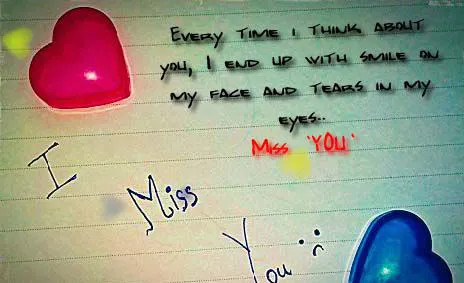 Every time i think about
you, I end up with smile on
my face and tears in my
eyes..
Miss 'YOU'
I
Miss
You :(